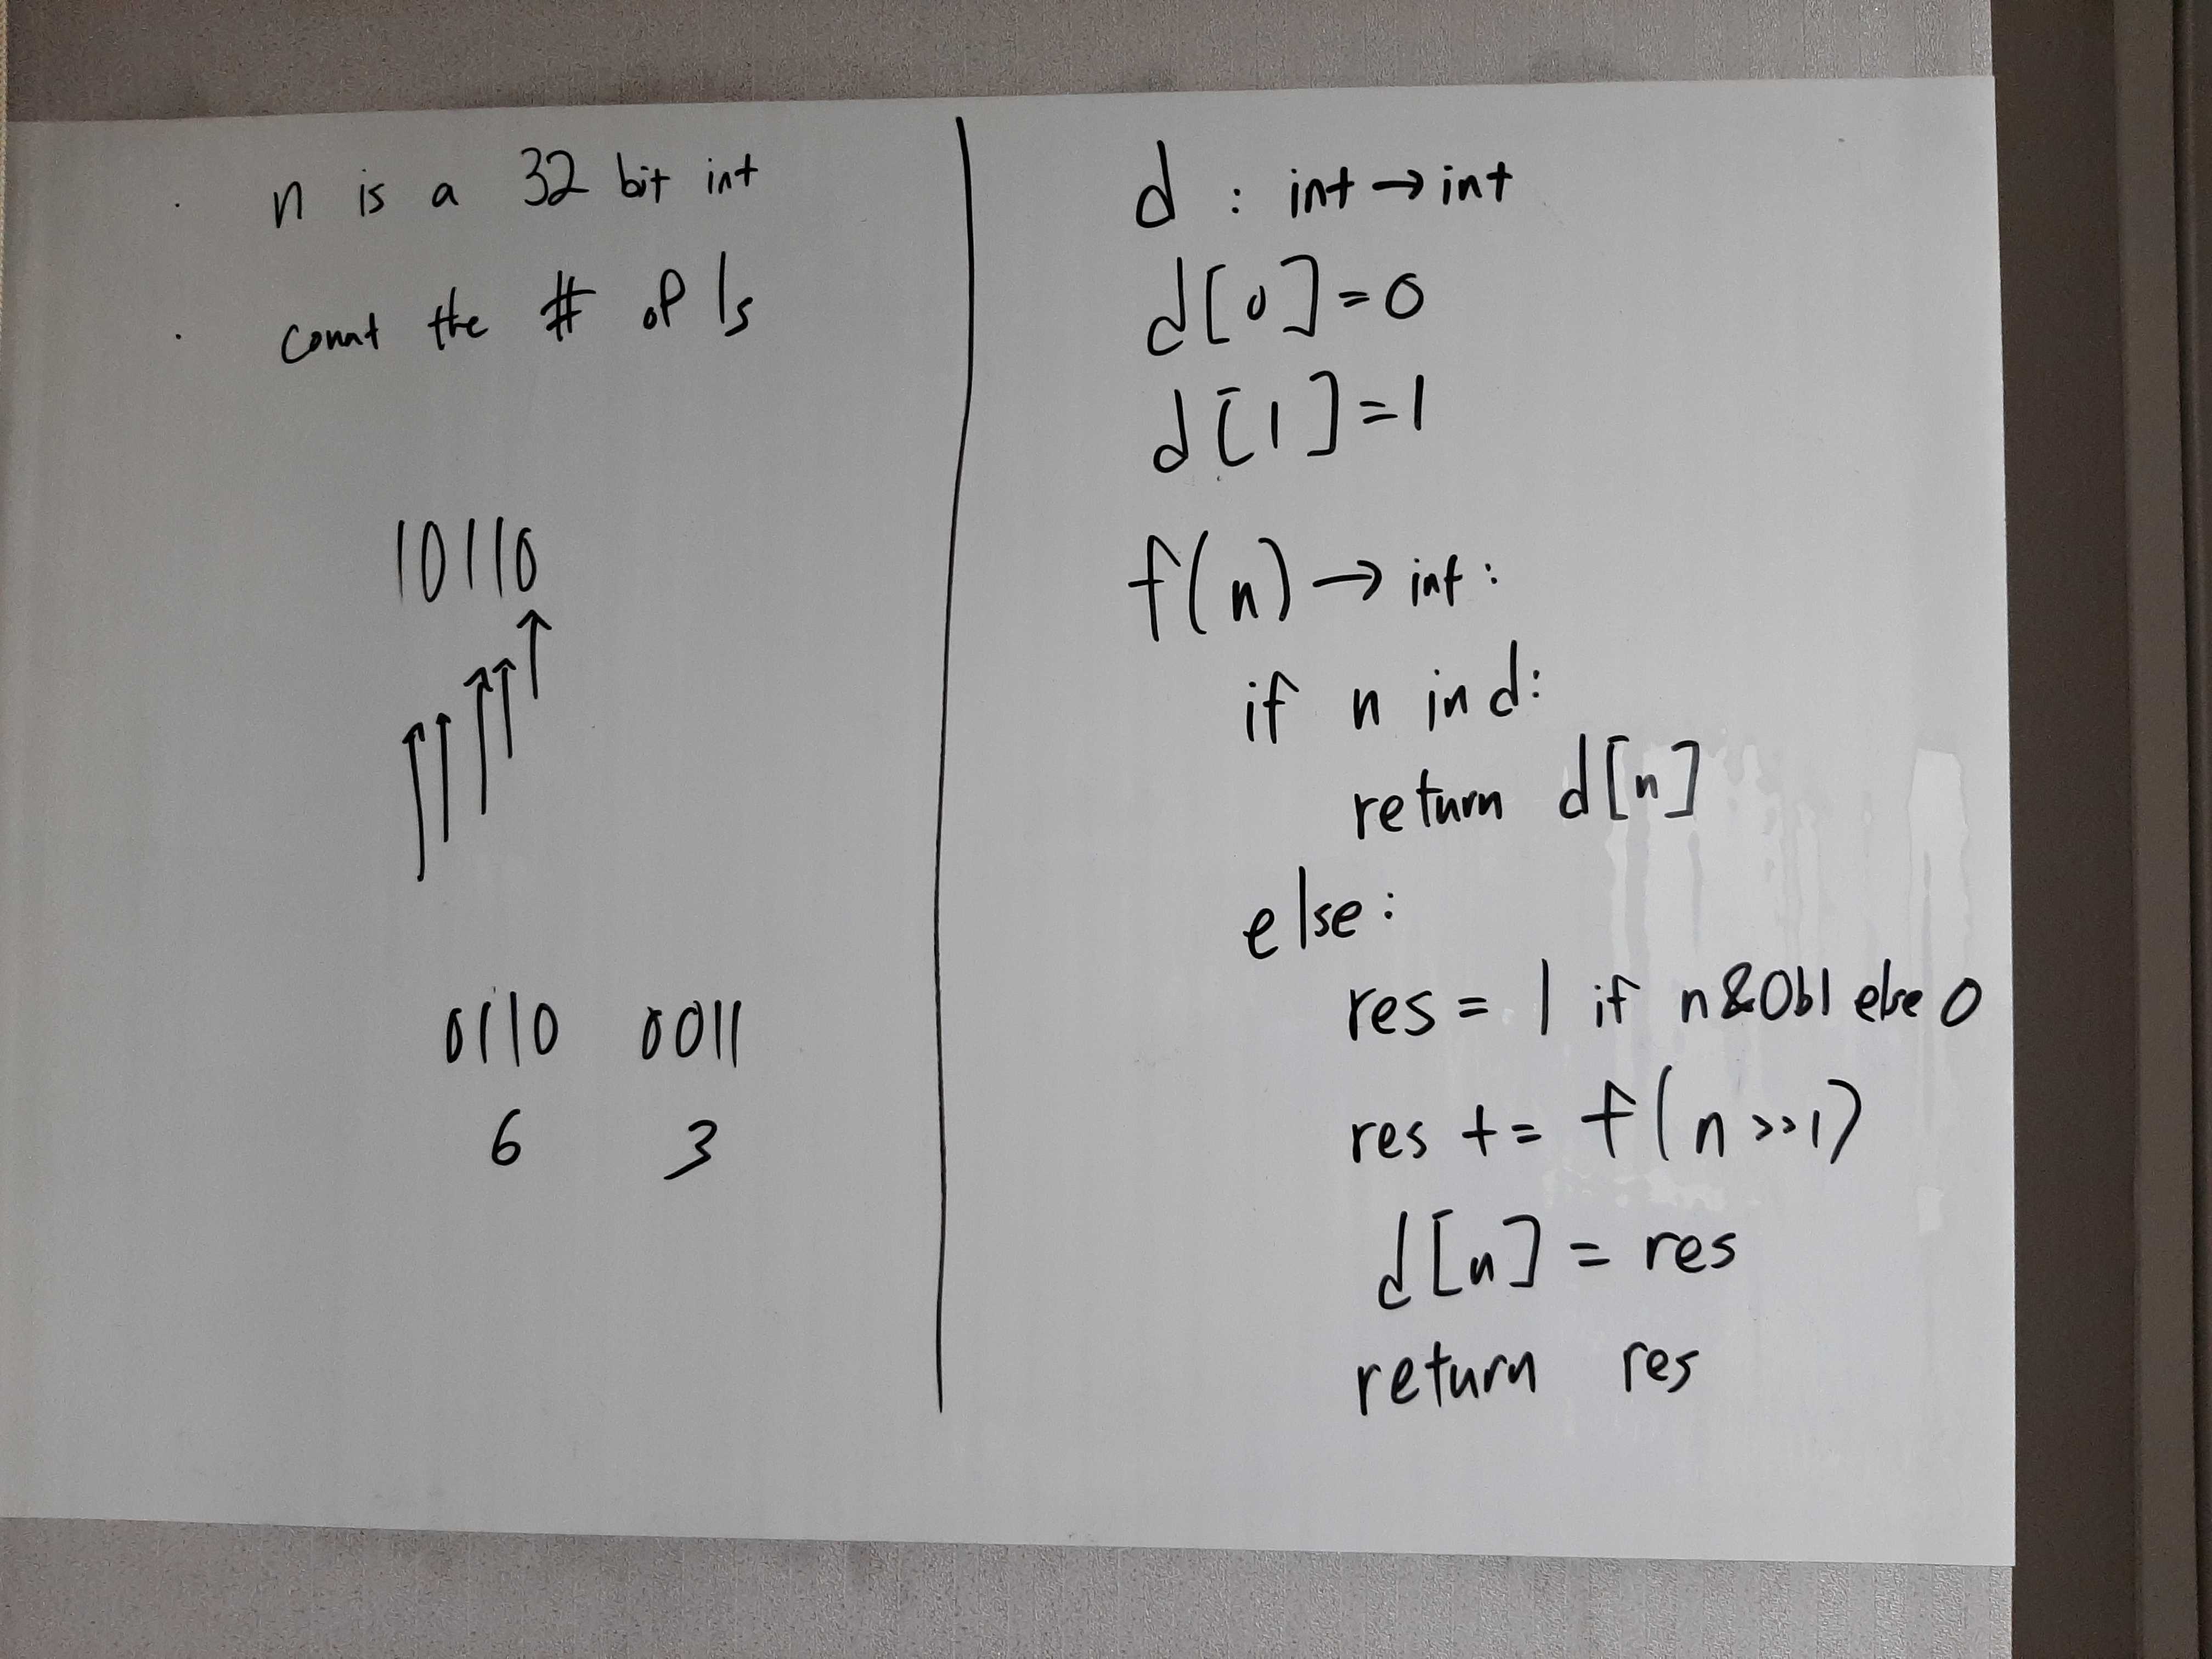 n is a 32 bit int
count the # of 1s
10110
0110 0011
6 3
d : int → int
d[0]=0
d[1]=1
f(n) → int:
if n in d:
return d[n]
else:
res = 1 if n&0b1 else 0
res += f(n>>1)
d[n] = res
return res